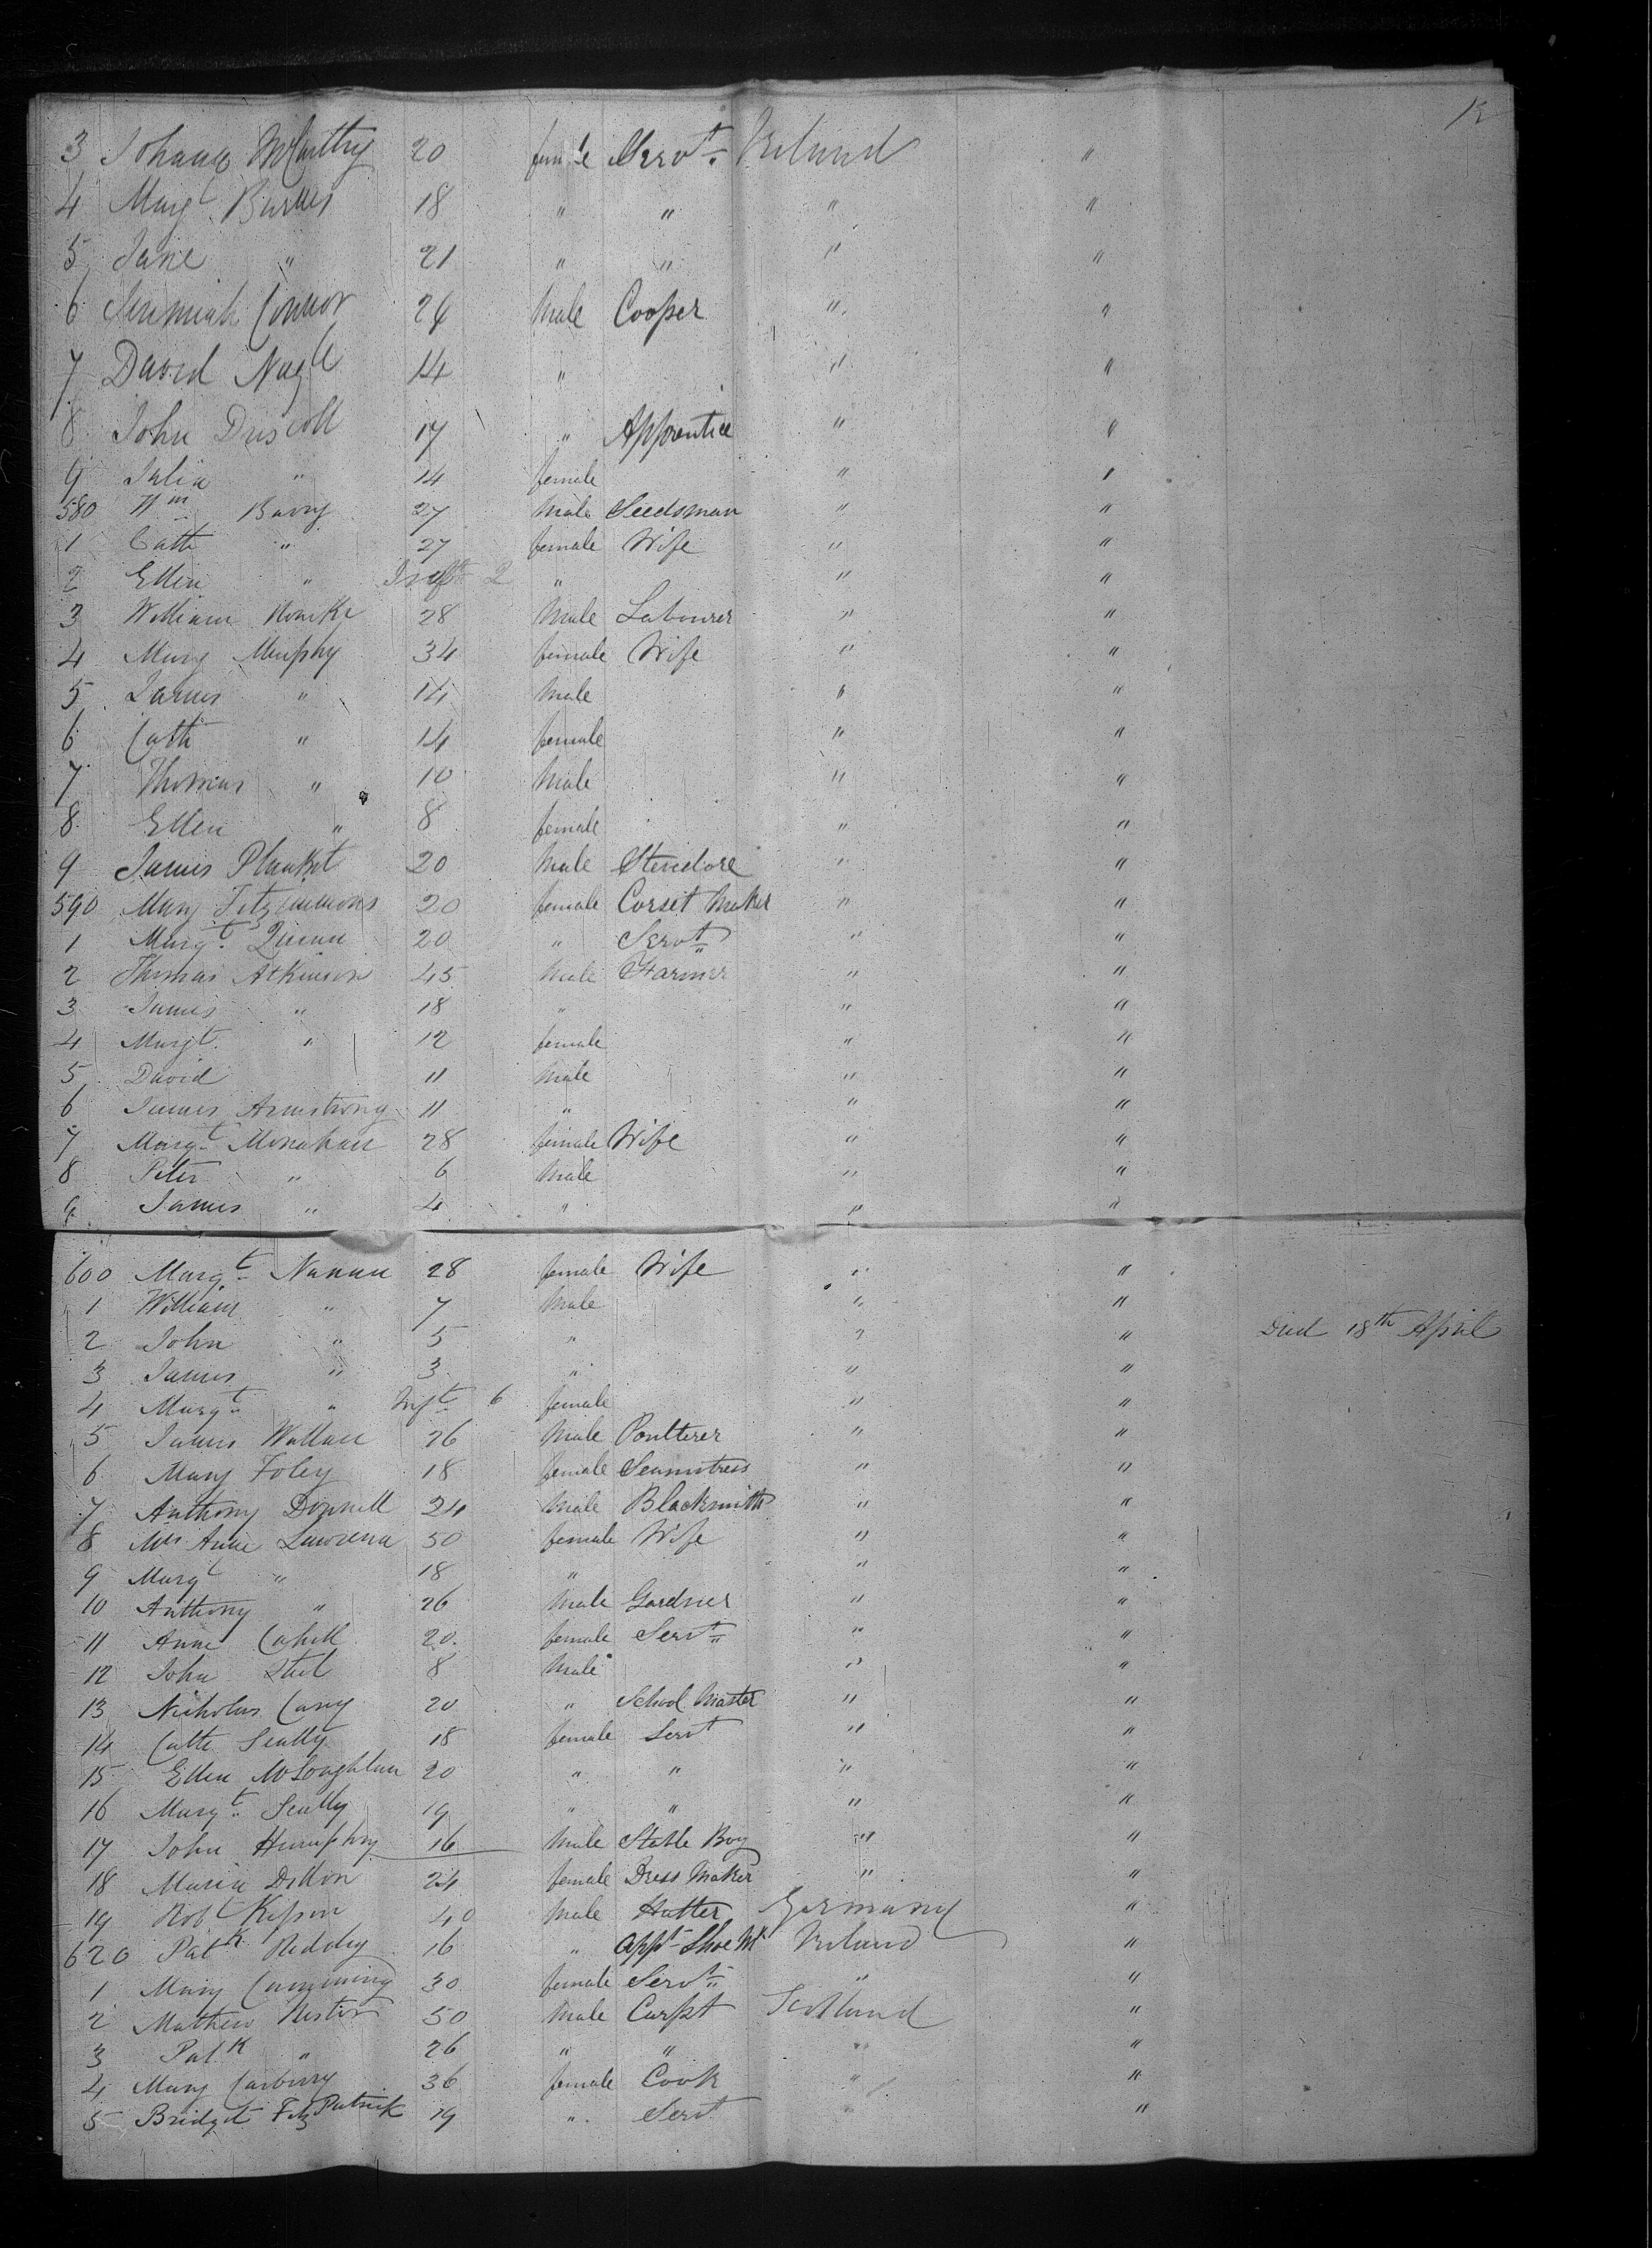 12
3 Johana McCarthy 20 female Servt. Ireland "
4 Margt Burns 18 " " " "
5 Jane " 21 " " " "
6 Jeremiah Connor 26 Male Cooper " "
7 David Nagle 14 " " "
8 John Driscoll 17 " Apprentice " "
9 Julia " 14 female " "
580 Wm Barry 27 Male Seedsman " "
1 Cath " 27 female Wife " "
2 Ellen " Inft 2 " " "
3 William 28 Male Labourer " "
4 Mary Murphy 34 female Wife " "
5 James " 14 Male " "
6 Cath " 14 female " "
7 Thomas " 10 Male " "
8 Ellen " 8 female " "
9 James Plunket 20 Male Stevedore " "
590 Mary Fitzsimmons 20 female Corset Maker " "
1 Margt. Quinn 20 " Servt " "
2 Thomas Atkinson 45 Male Farmer " "
3 James " 18 " " "
4 Margt. " 12 female " "
5 David 11 Male " "
6 James Armstrong 11 " " "
7 Margt. Monahan 28 female Wife " "
8 Peter " 6 Male " "
9 James " 4 " " "
600 Margt. Nanan 28 female Wife " "
1 William " 7 Male " "
2 John " 5 " " " Died 18th April
3 James " 3 " " "
4 Margt. " Inft 6 female " "
5 James Wallace 26 Male Poulterer " "
6 Mary Foley 18 female Seamstress " "
7 Anthony Donnell 24 Male Blacksmith " "
8 Mrs Anne Lawrence 50 female Wife " "
9 Margt " 18 " " "
10 Anthony " 26 Male Gardner " "
11 Anne Cahill 20 female Servt " "
12 John Steel 8 Male " "
13 Nicholas Cary 20 " School Master " "
14 Cathe Scully 18 female Servt " "
15 Ellen McLoughlan 20 " " " "
16 Margt. Scully 19 " " " "
17 John Humphry 16 Male Stable Boy " "
18 Maria Dillon 24 female Dress Maker " "
19 Robt 40 Male Hatter Germany "
620 Patk Reddy 16 " Appt Shoe Mr Ireland "
1 Mary Cumming 30 female Servt " "
2 Mathew Nestor 50 Male Carpt Scotland "
3 Patk " 26 " " " "
4 Mary Carberry 36 female Cook " "
5 Bridget Fitz Patrick 19 " Servt " "